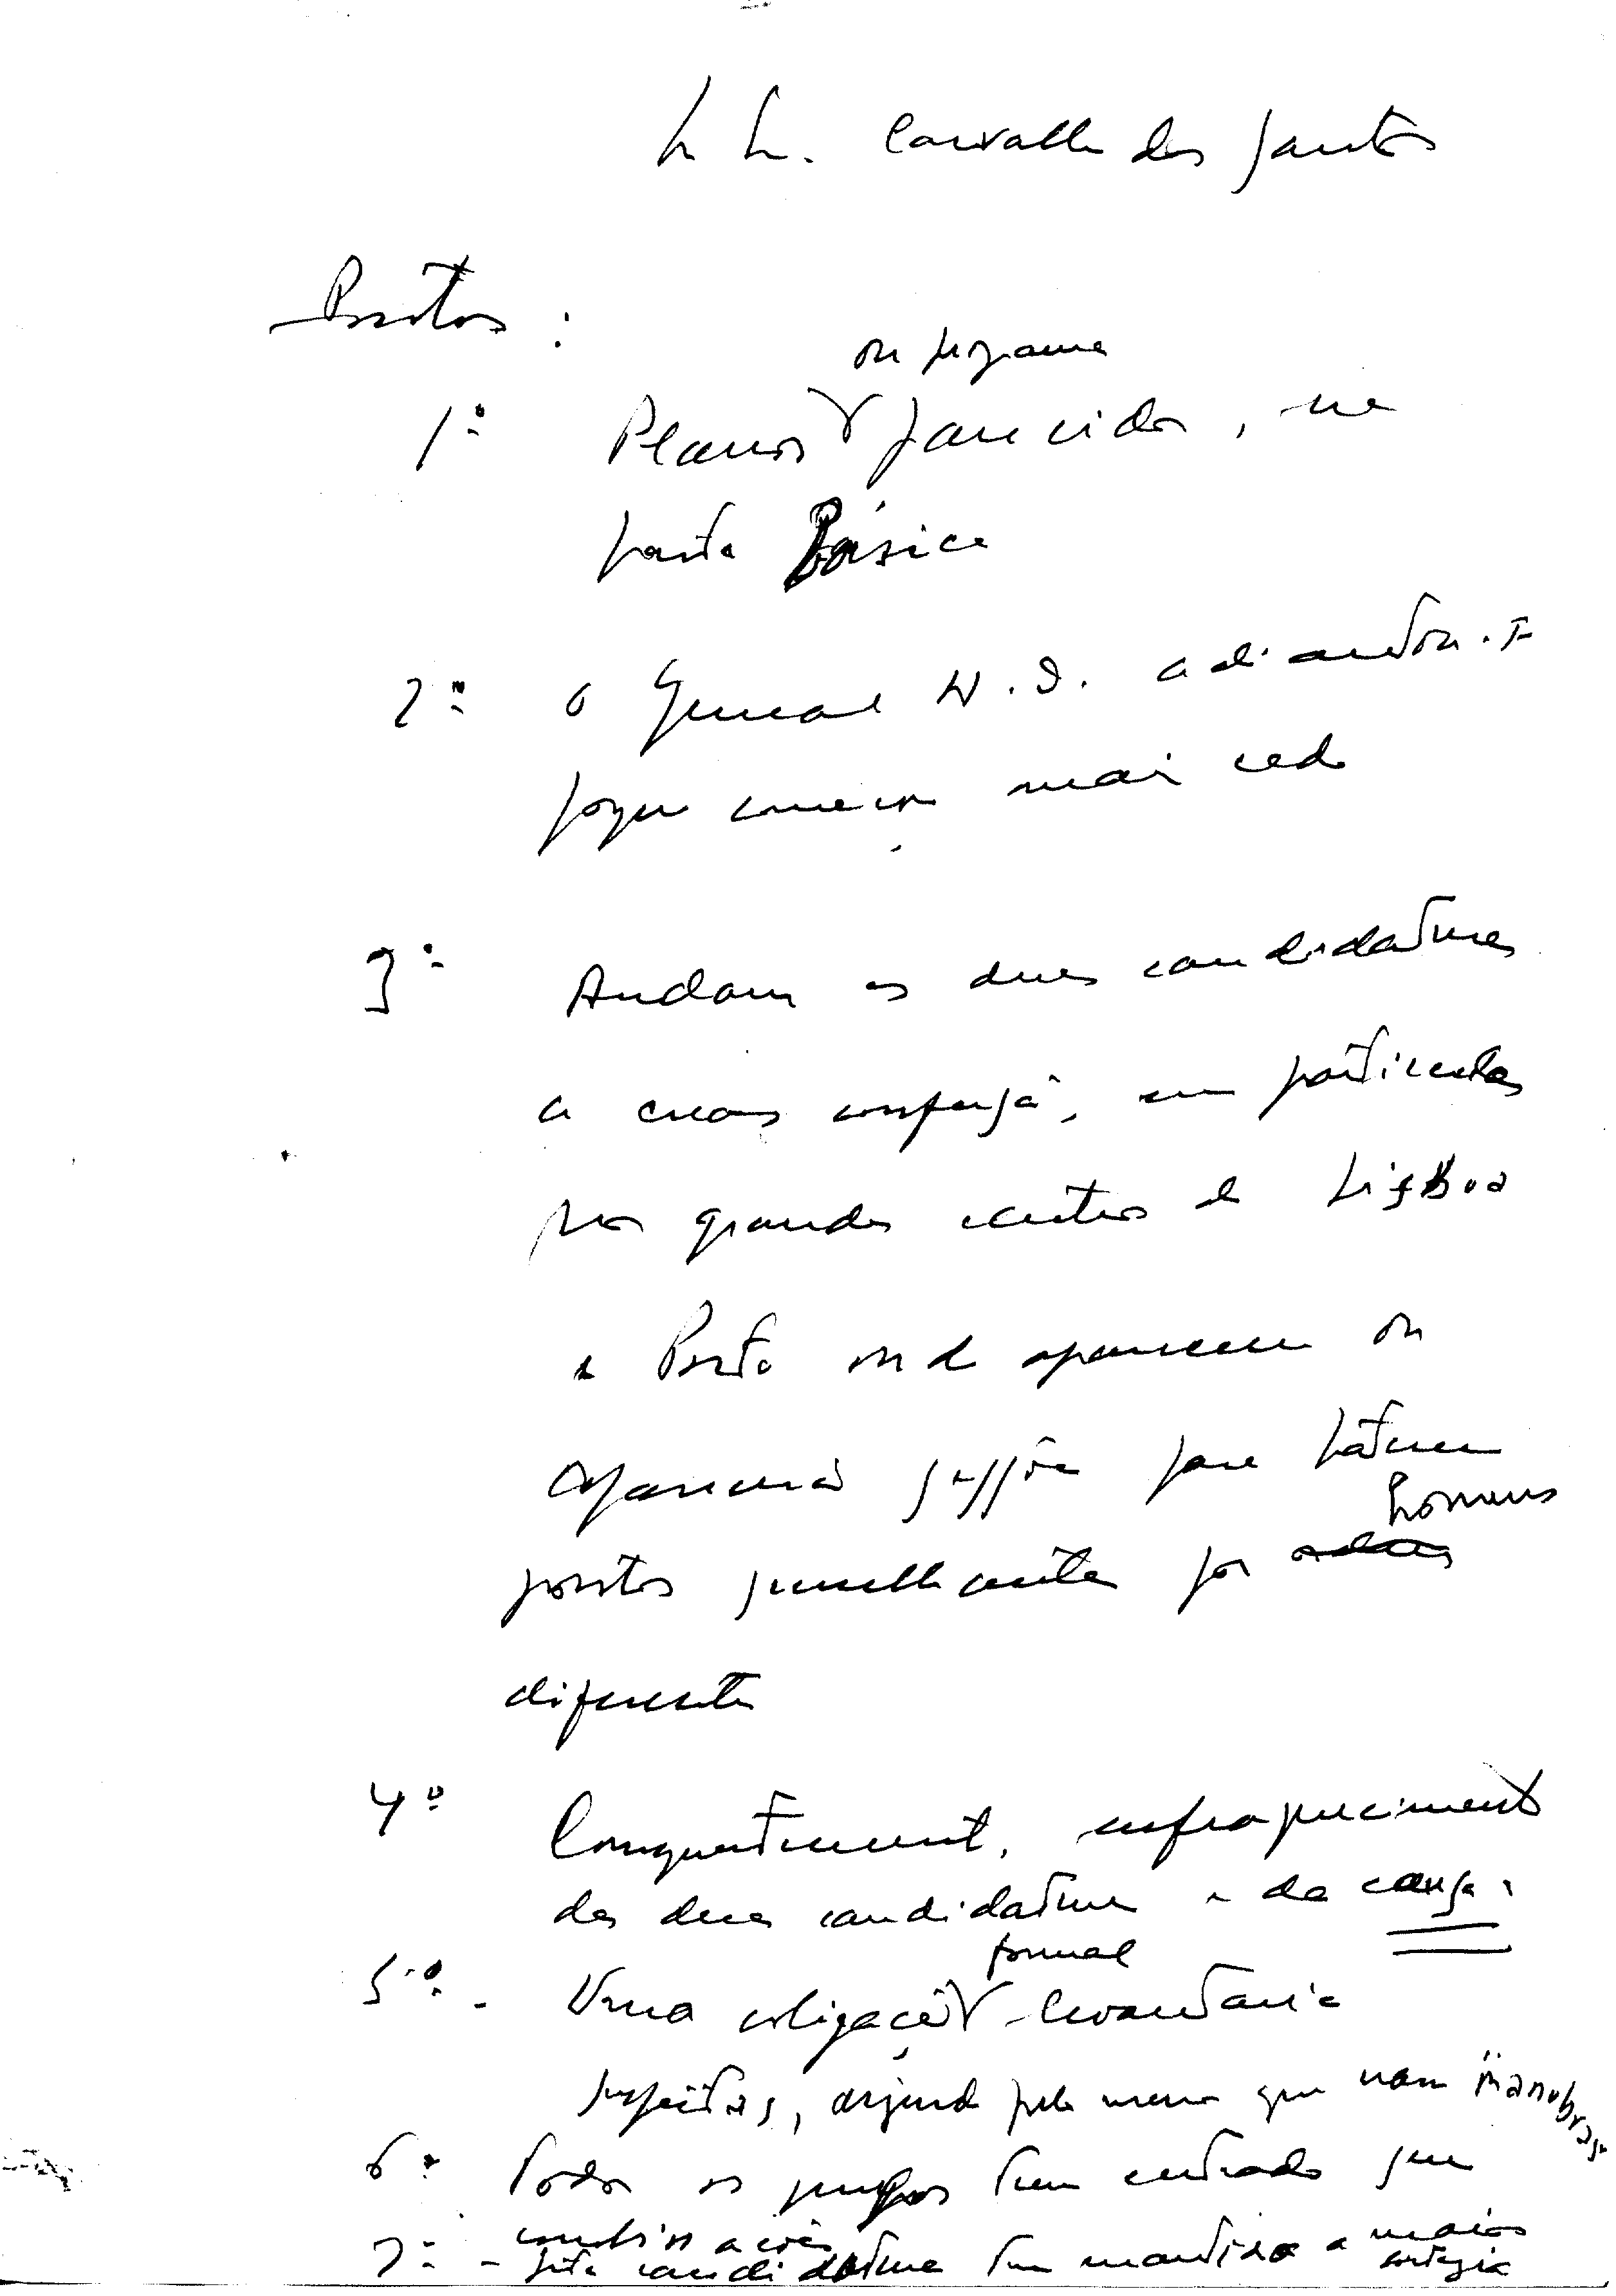 Carvalho dos Santos
Pontos :
ou programa
1º Planos parecidos, na
parte Básica
2º O General N. D. adiantou-se
porque começou mais cedo
3º Andam as duas candidaturas
a criar confusão, em particular
nos grandes centros de Lisboa
e Porto onde aparecem ou
aparecerão para
pontos semelhantes por homens
diferentes
4º Consequentemente, enfraquecimento
das duas candidaturas e da causa.
formal
5º - Uma coligação levantaria
suspeitas, dizendo pelo menos que eram "manobras"
6º Todos os grupos têm entrado sem
combinações
7º - Esta candidatura tem mantido a maior
cortezia